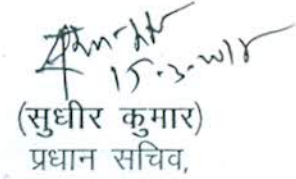 15.3.2018
(सुधीर कुमार)
प्रधान सचिव,